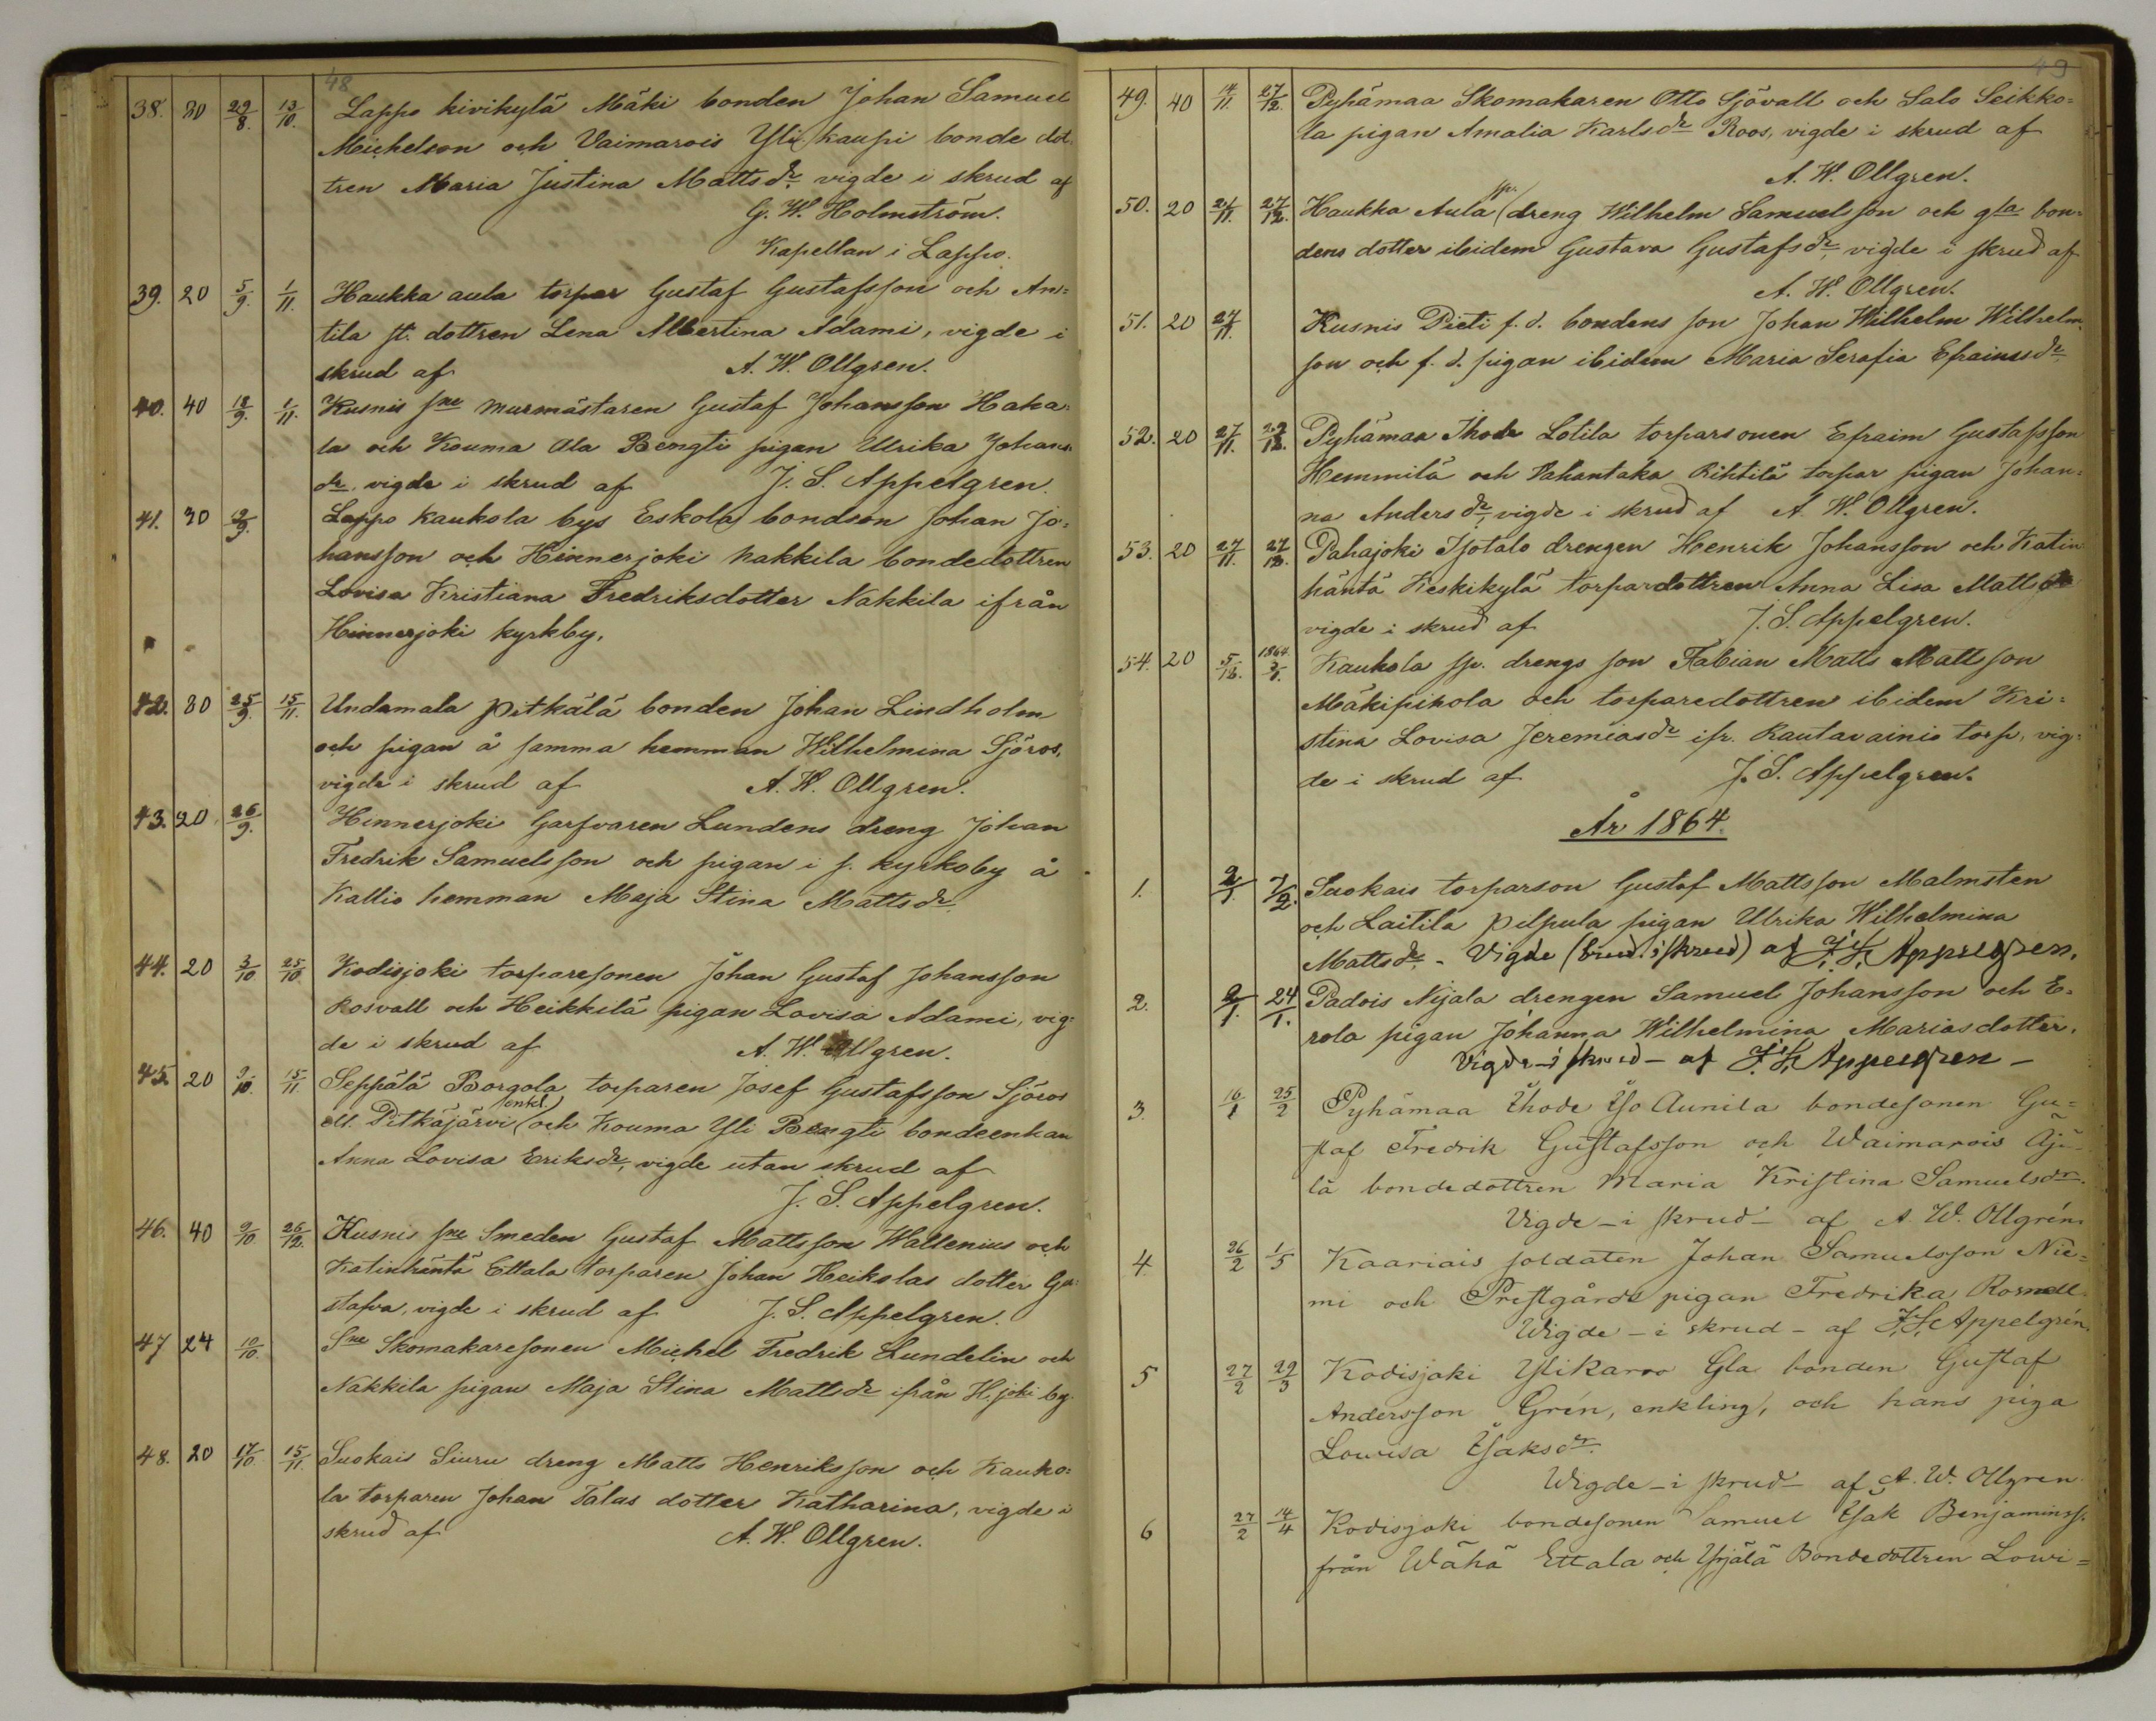 48
38. 30 29/8. 13/10. Lappo kivikylä Mäki bonden Johan Samuel
Michelson och Vaimarois Yli kaupi bonde dot.
tren Maria Justina Mattsdr. vigde i skrud af
G. W. Holmström.
Kapellan i Lappo.
39. 20 5/9. 1/11. Haukka aula torpar Gustaf Gustafsson och An=
tila st. dottren Lena Albertina Adami, vigde i
skrud af A. W. Ollgren.
40. 40 18/9. 1/11. Kusnis sne murmästaren Gustaf Johansson Haka=
la och Kouma Ala Bengti pigan Ulrika Johans
dr. vigde i skrud af J. S. Appelgren.
41. 30 Lappo Kaukola bys Eskola bondson Johan Jo=
hansson och Hinnerjoki Nakkila bondedottren
Lovisa Kristiana Fredriksdotter Nakkila ifrån
Hinnerjoki kyrkby.
42. 30 25/9. 15/11. Undamala Pitkälä bonden Johan Lindholm
och pigan å samma hemman Wilhelmina Sjöros,
vigde i skrud af A. W. Ollgren.
43. 20 26/9. Hinnerjoki Garfvaren Lundens dreng Johan
Fredrik Samuelsson och pigan i s. kyrkoby å
Kallio hemman Maja Stina Mattsdr.
44. 20 3/10. 25/10. Kodisjoki torparesonen Johan Gustaf Johansson
Rosvall och Heikkilä pigan Lovisa Adami, vig=
de i skrud af A. W. Ollgren.
45. 20 9/10. 15/11. Seppälä Borgola torparen Josef Gustafsson Sjöros
ell. Pitkäjärvi (enkl.) och Kouma Yli Bengti bondeenkan
Anna Lovisa Eriksdr, vigde utan skrud af
J. S. Appelgren.
46. 40 9/10. 26/12. Kusnis sne Smeden Gustaf Mattsson Wallenius och
Katinhäntä Ettala torparen Johan Heikolas dotter Gu=
stafva, vigde i skrud af J. S. Appelgren.
47 24 10/10. Sne Skomakaresonen Michel Fredrik Lundelin och
Nakkila pigan Maja Stina Mattsdr ifrån H. joki by.
48. 20 17/10. 15/11. Suokais Siuru dreng Matts Henriksson och Kauko=
la torparen Johan Talas dotter Katharina, vigde i
skrud af A. W. Ollgren.
49
49. 40 14/11. 27/12. Pyhämaa Skomakaren Otto Sjövall och Salo Seikko=
la pigan Amalia Karlsdr Roos, vigde i skrud af
A. W. Ollgren.
50. 20 21/11. 27/12. Haukka Aula spr. dreng Wilhelm Samuelsson och gla bon=
dens dotter ibidem Gustava Gustafsdr, vigde i skrud af
A. W. Ollgren.
51. 20 27/11. Kusnis Pieti f. d. bondens son Johan Wilhelm Wilhelm.
son och f. d. pigan ibidem Maria Serafia Efraimsdr.
52. 20 27/11. 29/12. Pyhämaa Ihode Lotila torparsonen Efraim Gustafsson
Hemmilä och Vahantaka Rihtilä torpar pigan Johan=
na Andersdr, vigde i skrud af A. W. Ollgren.
53. 20 27/11. 27/12. Pahajoki Isotalo drengen Henrik Johansson och Katin
häntä Keskikylä torpardottren Anna Lisa Mattsdr
vigde i skrud af J. S. Appelgren.
54. 20 5/12. 1864. Kaukola spr. drengs son Fabian Matts Mattsson
Mäkipihola och torparedottren ibidem Kri=
stina Lovisa Jeremiasdr ifr. Rautavainio torp, vig=
de i skrud af J. S. Appelgren.
År 1864.
1. 2/1 7/2. Suokais torparson Gustaf Mattsson Malmsten
och Laitila Pilpula pigan Ulrika Wilhelmina
Mattsdr. - Vigde (brud. i skrud) af J. S. Appelgren.
2. 2/1. 24/1. Padois Nijala drengen Samuel Johansson och E=
rola pigan Johanna Wilhelmina Mariasdotter.
Vigde - i skrud - af J. S. Appelgren -
3. 16/1 25/2 Pyhämaa Ihode Iso Aunila bondesonen Gu=
staf Fredrik Gustafsson och Waimarois Äji-
lä bondedottren Maria Kristina Samuelsdr.
Vigde - i skrud - af A. W. Ollgrén.
4. 26/2 1/5 Kaariais soldaten Johan Samuelsson Nie=
mi och Prestgårds pigan Fredrika Rosnell.
Wigde - i skrud - af J. S. Appelgrén.
5 27/2 29/3 Kodisjoki Ylikaroo Gla bonden Gustaf
Andersson Grén, enkling, och hans piga
Lowisa Isaksdr.
Wigde - i skrud - af A. W. Ollgren
6 27/2 14/4 Kodisjoki bondesonen Samuel Isak Benjaminss.
från Wähä Ettala och Yrjälä Bondedottren Lowi=